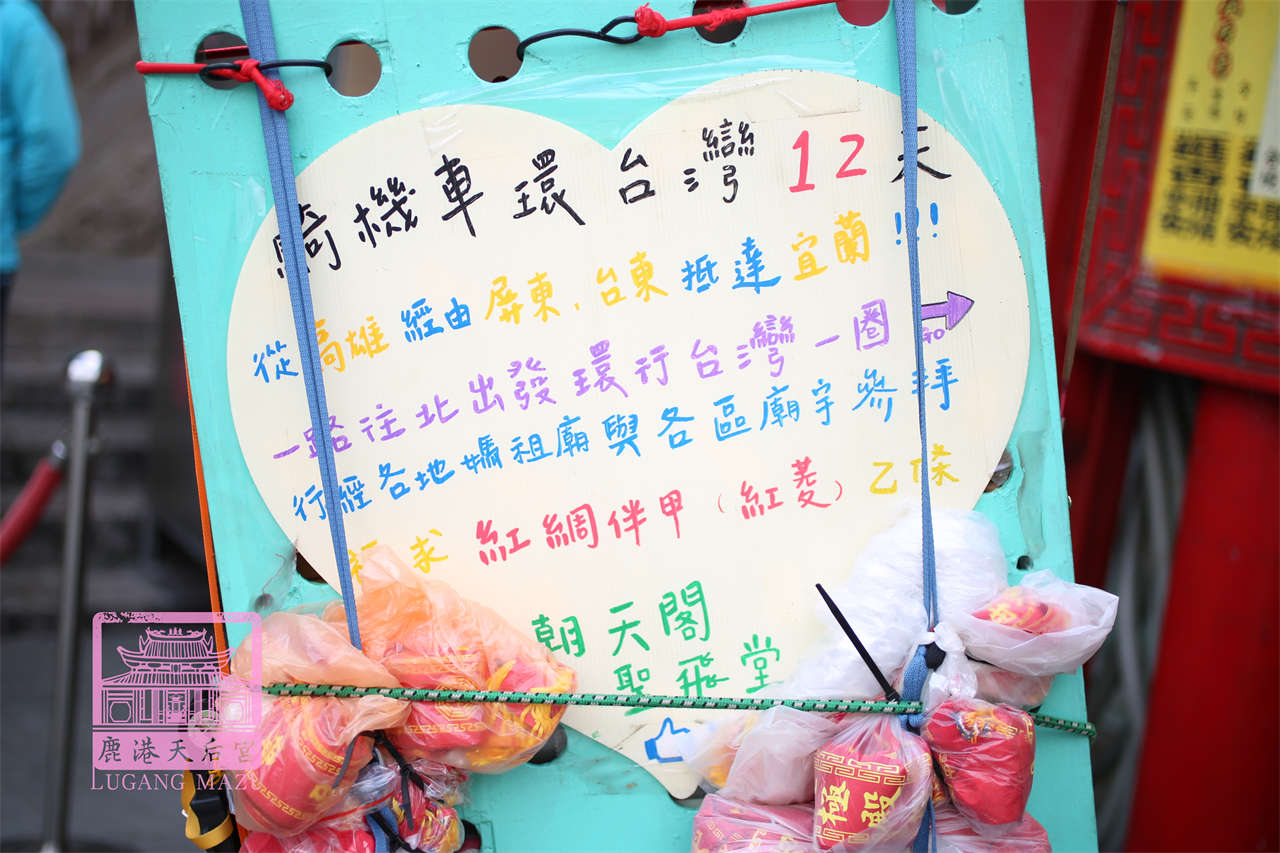 騎機車環台灣12天
從高雄經由屏東,台東抵達宜蘭!!!
一路往北出發環行台灣一圈 GO
行經各地媽祖廟與各區廟宇參拜
求紅綢伴甲(紅菱)乙條
朝天閣
聖飛堂
鹿港天后宮
LUGANG MAZU
極殿